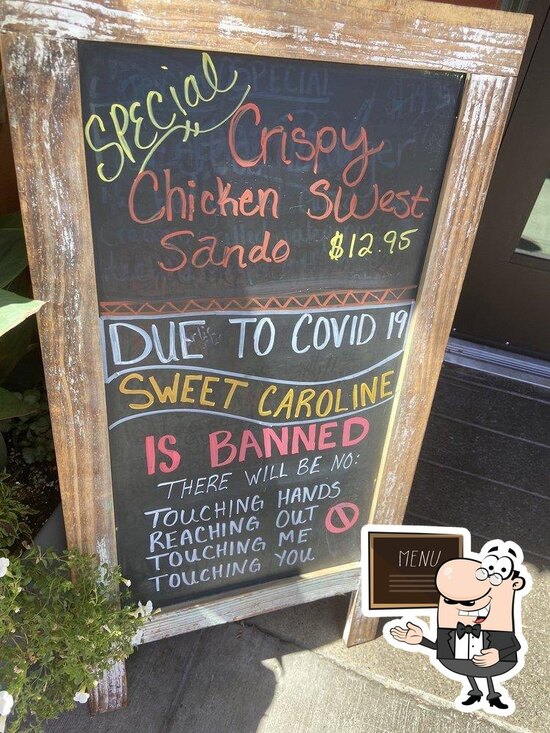 SPECIAL
Crispy
Chicken SWest
Sando $12.95
DUE TO COVID 19
SWEET CAROLINE
IS BANNED
THERE WILL BE NO:
TOUCHING HANDS
REACHING OUT
TOUCHING ME
TOUCHING YOU
MENU